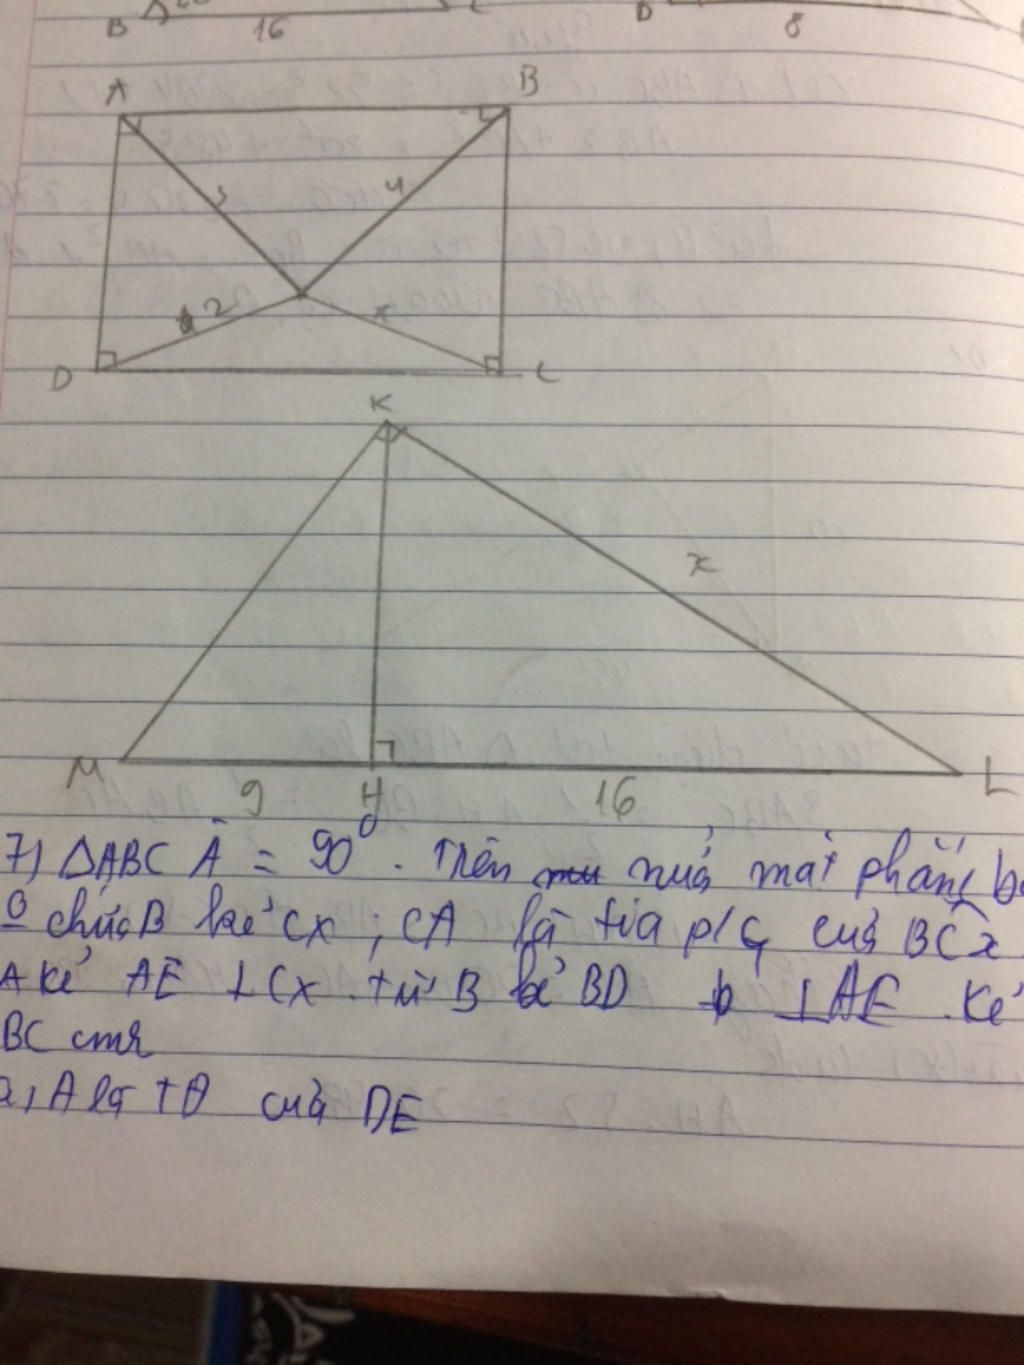 B 16 C D 8
A B
3 4
2 x
D C
K
x
M 9 H 16 L
7) ΔABC Â = 90⁰. Trên nửa mặt phẳng
0 chứa B kẻ Cx ; CA là tia p/g của BCx
A kẻ AE ⊥ Cx. từ B kẻ BD ⊥ AE. Kẻ
BC cmr
a, A là TĐ của DE